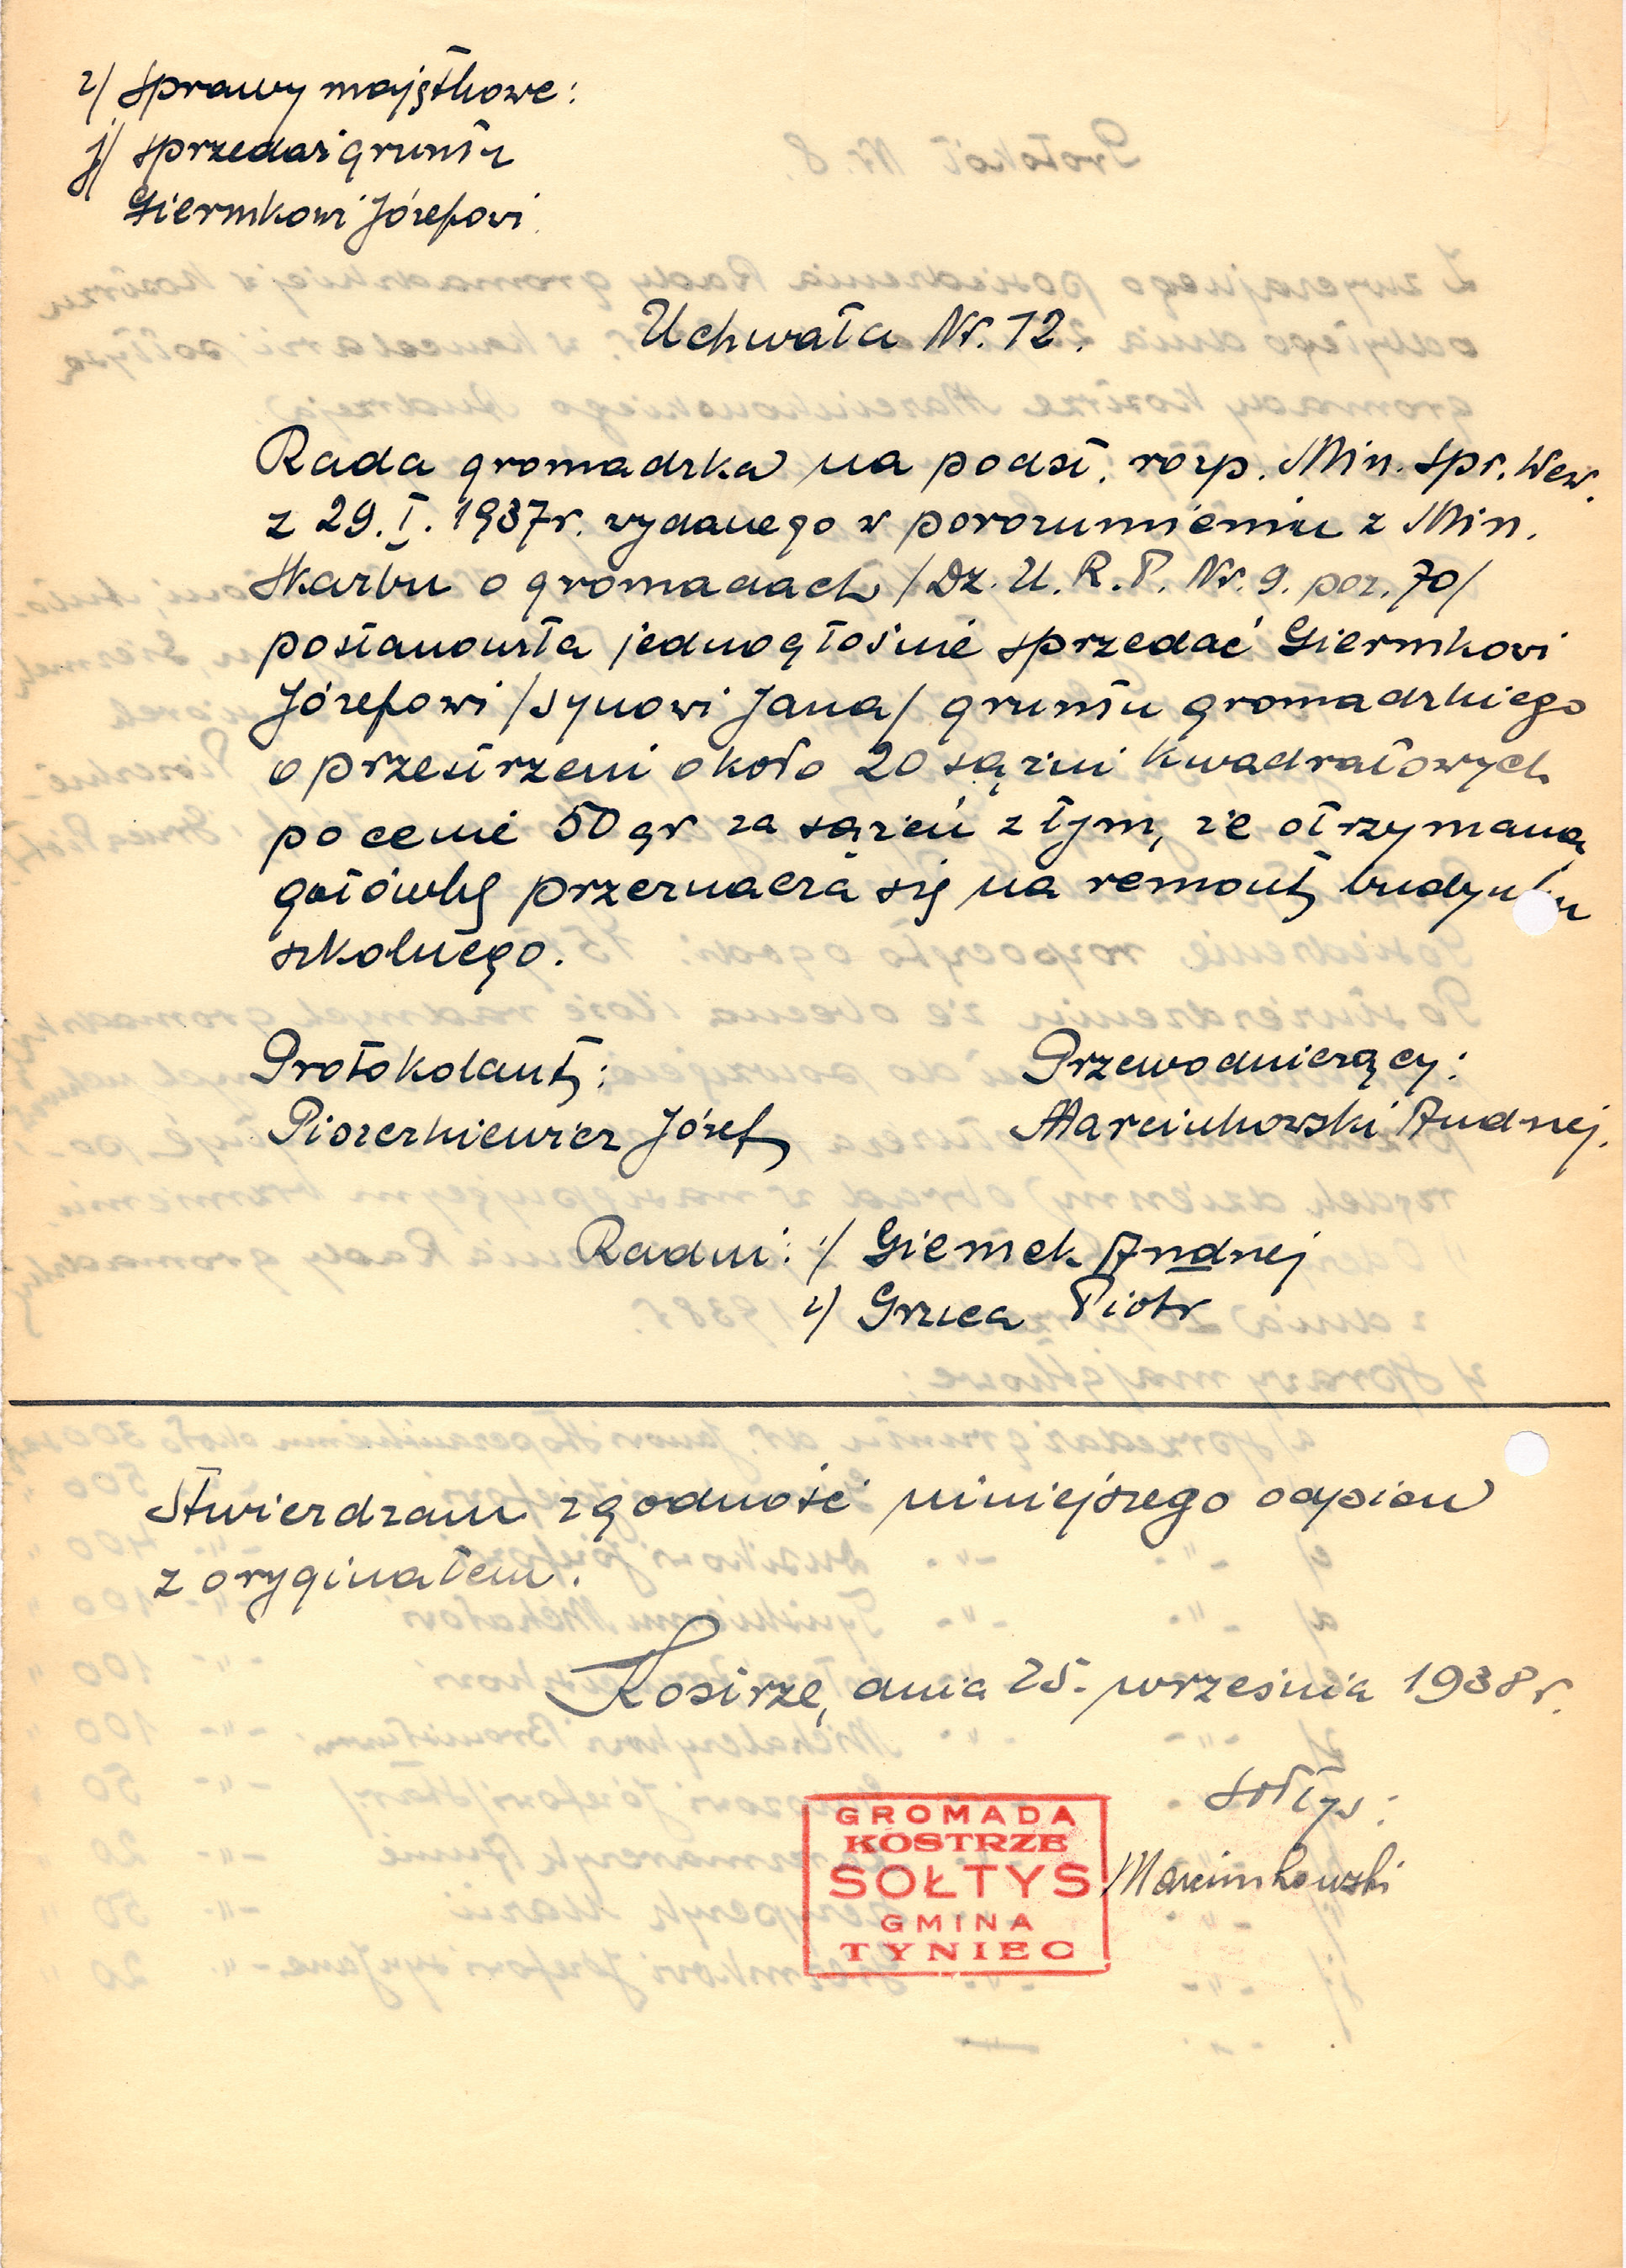 2/ Sprawy majątkowe:
j/ sprzedaż gruntu
Giermkowi Józefowi.
Uchwała Nr. 12.
Rada gromadzka na podst. rozp. Min. Spr. Wew.
z 29.I.1937r. wydanego w porozumieniu z Min.
Skarbu o gromadach /Dz. U. R. P. Nr. 9. poz. 70/
postanowiła jednogłośnie sprzedać Giermkowi
Józefowi /synowi Jana/ gruntu gromadzkiego
o przestrzeni około 20 sążni kwadratowych
po cenie 50 gr za sążeń z tym, że otrzymaną
gotówkę przeznacza się na remont budynku
szkolnego.
Protokolant: Przewodniczący:
Piszczkiewicz Józef Marcinkowski Andrzej.
Radni: 1/ Giermek Andrzej
2/ Gruca Piotr
Stwierdzam zgodność niniejszego odpisu
z oryginałem.
Kostrze, dnia 25. września 1938r.
Sołtys:
Marcinkowski
GROMADA
KOSTRZE
SOŁTYS
GMINA
TYNIEC